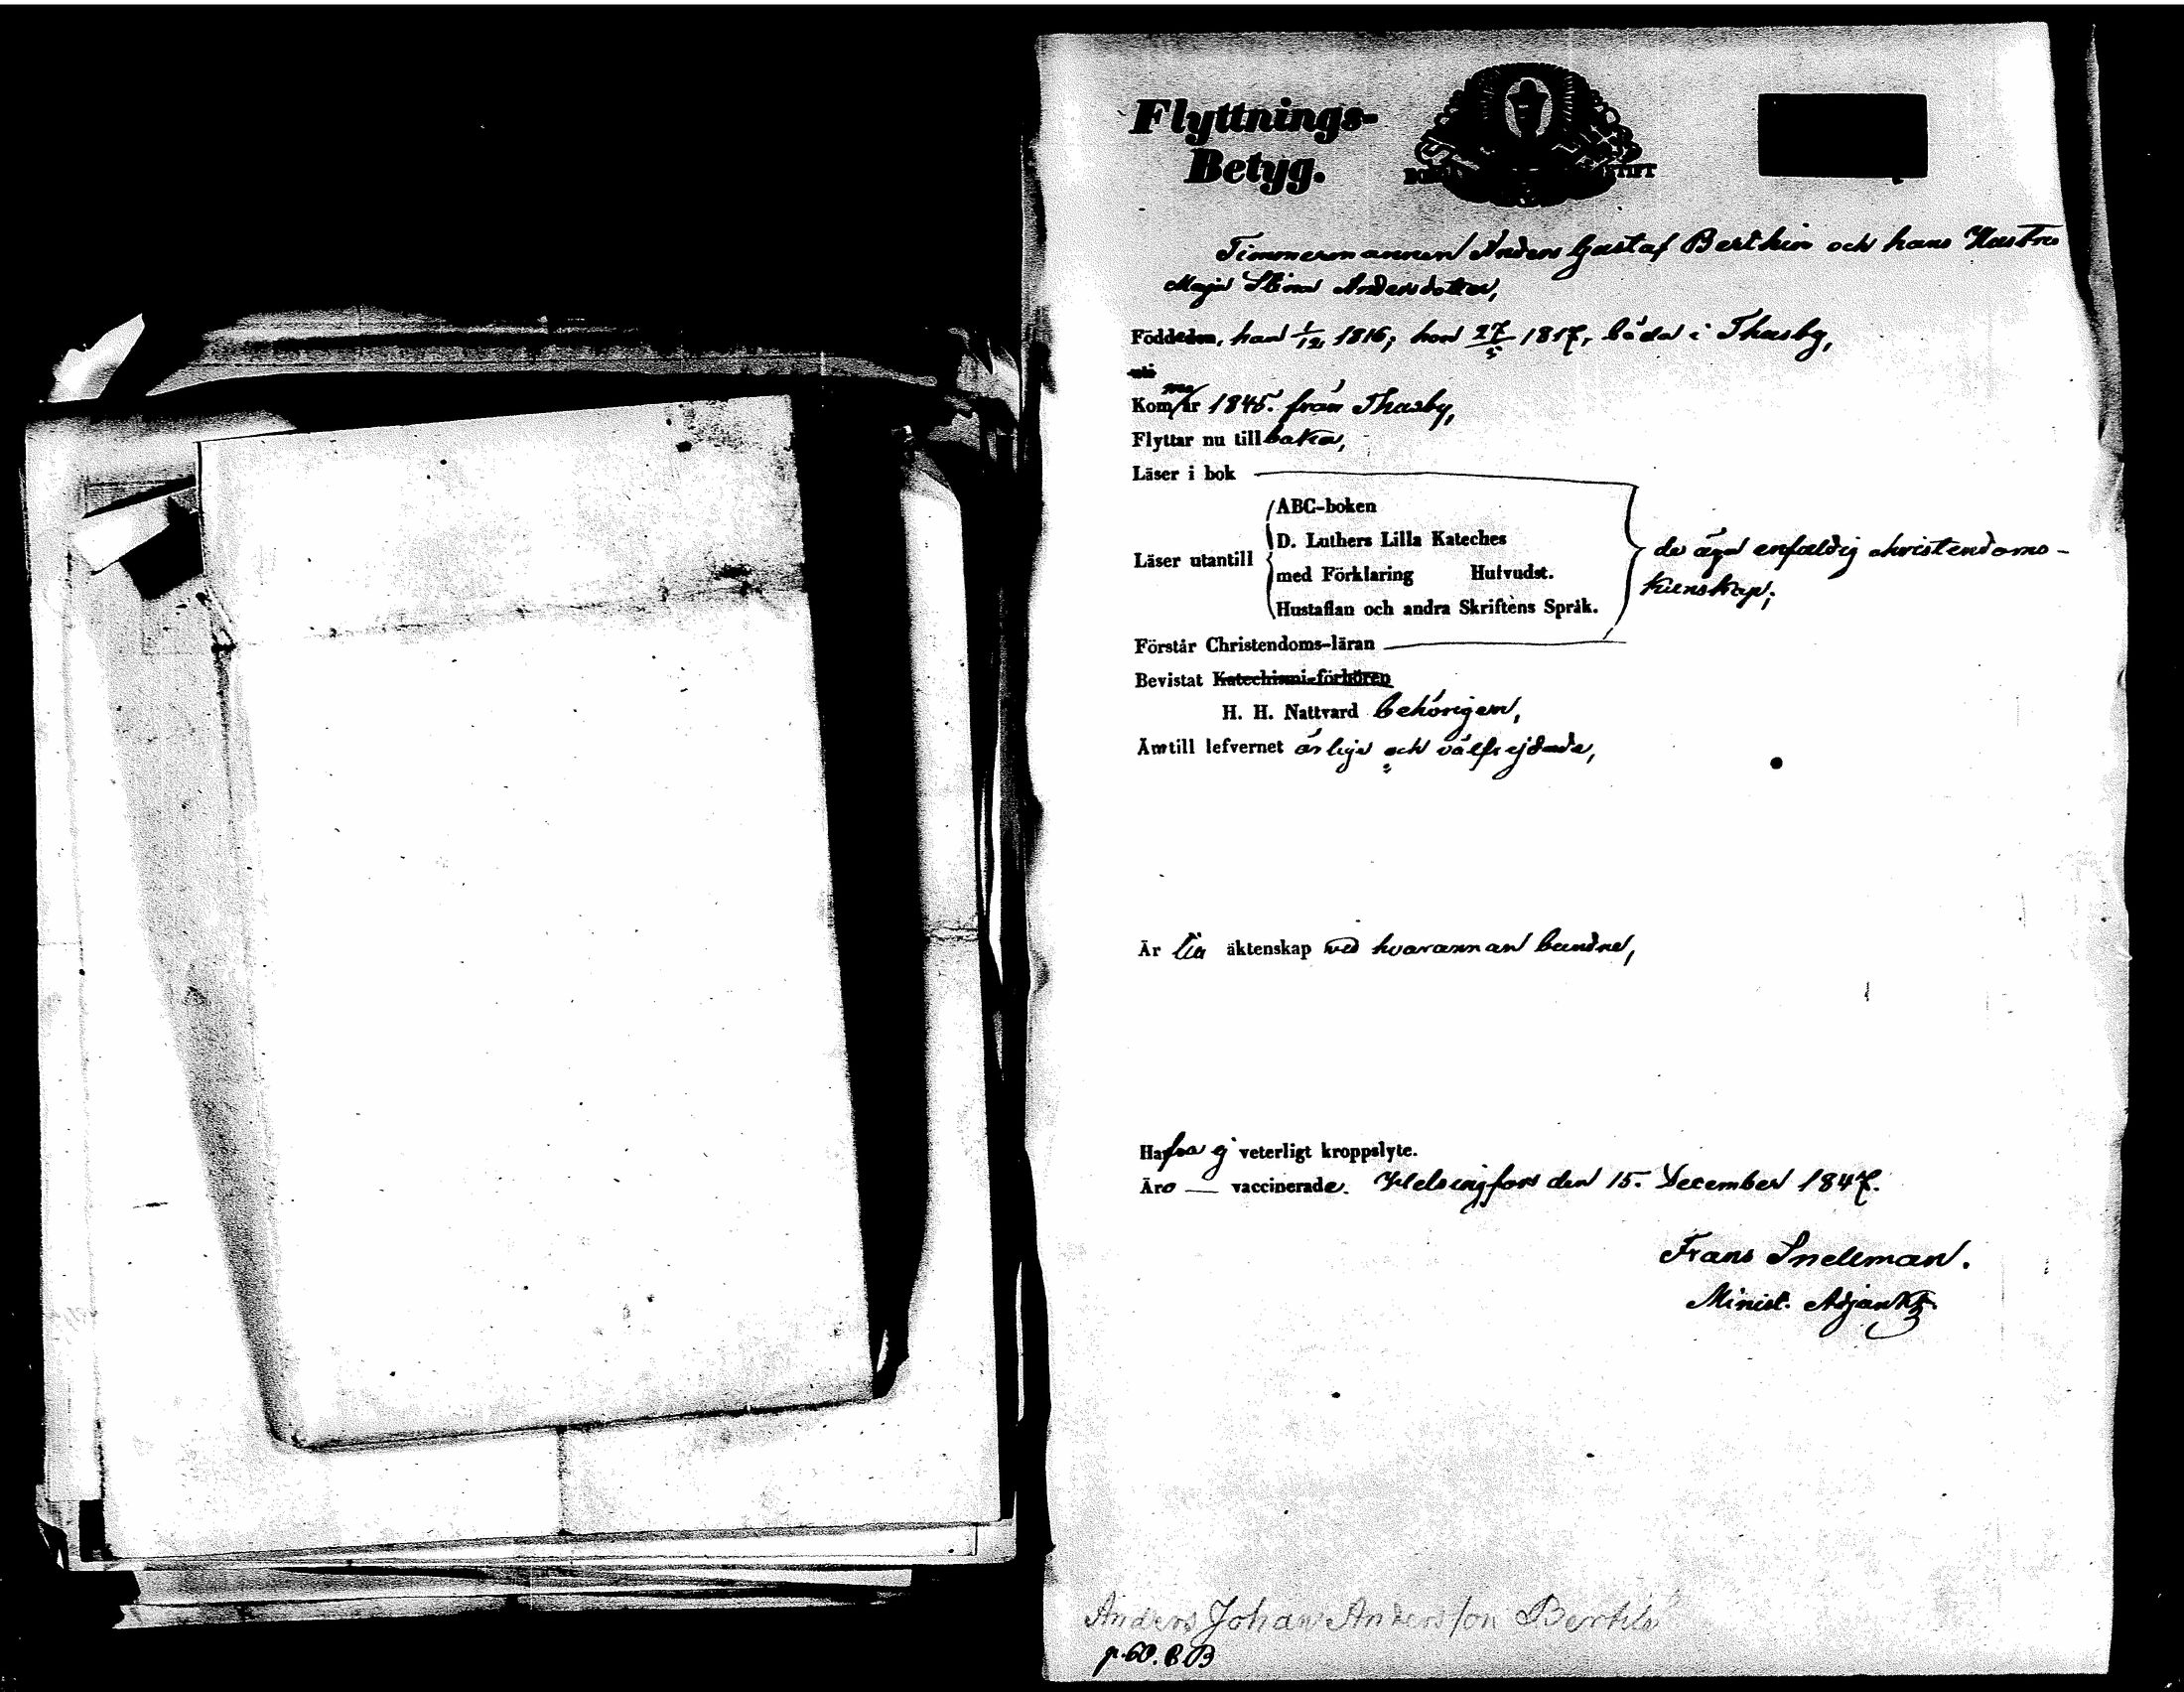 Flyttnings-
Betyg.
Timmermannen Anders Gustaf Berthin och hans Hustru
Maja Stina Andersdotter,
Födde den, han 1/12 1816, hon 27/5 1817, båda i Thusby,
Kommo år 1845. från Thusby,
Flyttar nu tillbaka,
Läser i bok
ABC-boken
D. Luthers Lilla Kateches
Läser utantill
med Förklaring Hufvudst.
Hustaflan och andra Skriftens Språk.
de äga enfaldig christendoms-
kunskap;
Förstår Christendoms-läran
Bevistat Katechismi-förhören
H. H. Nattvard behörigen,
Äro till lefvernet ärliga och välfrejdade,
Är äktenskap med hvarannan bundne,
Hafva ej veterligt kroppslyte.
Äro — vaccinerade. Helsingfors den 15. December 1847.
Frans Snellman.
Minist. Adjunkt.
Anders Johan Andersson
p. 60. B. B